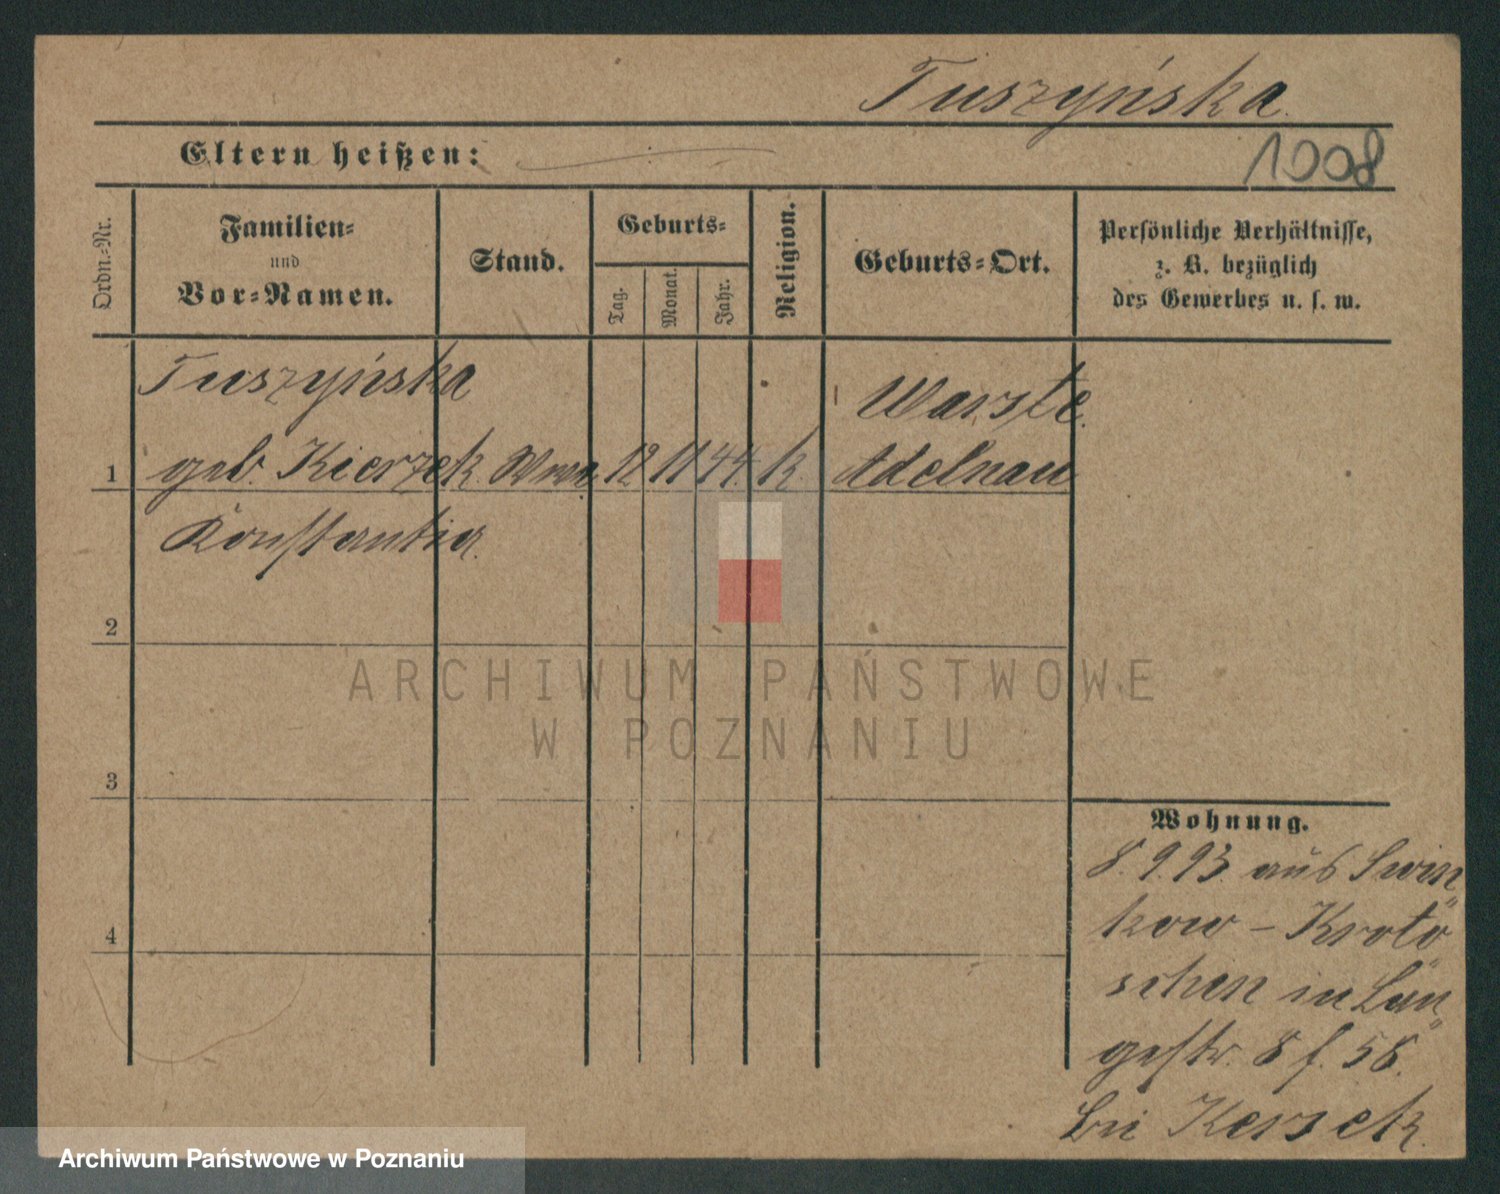 Tuszyńska
Eltern heißen:
1008
Ordn.-Nr.
Familien-
und
Vor-Namen.
Stand.
Geburts-
Tag.
Monat.
Jahr.
Religion.
Geburts-Ort.
Persönliche Verhältnisse,
z. B. bezüglich
des Gewerbes u. s. w.
Tuszyńska
geb. Kierzek
Konstantia.
Wwe.
12 11 44. k.
Adelnau
1
2
3
4
Wohnung.
8.9.93. aus Swin
kow - Kroto
schin in Lan
gestr. 8 f. 58.
bei Kerzek.
ARCHIWUM PAŃSTWOWE
W POZNANIU
Archiwum Państwowe w Poznaniu